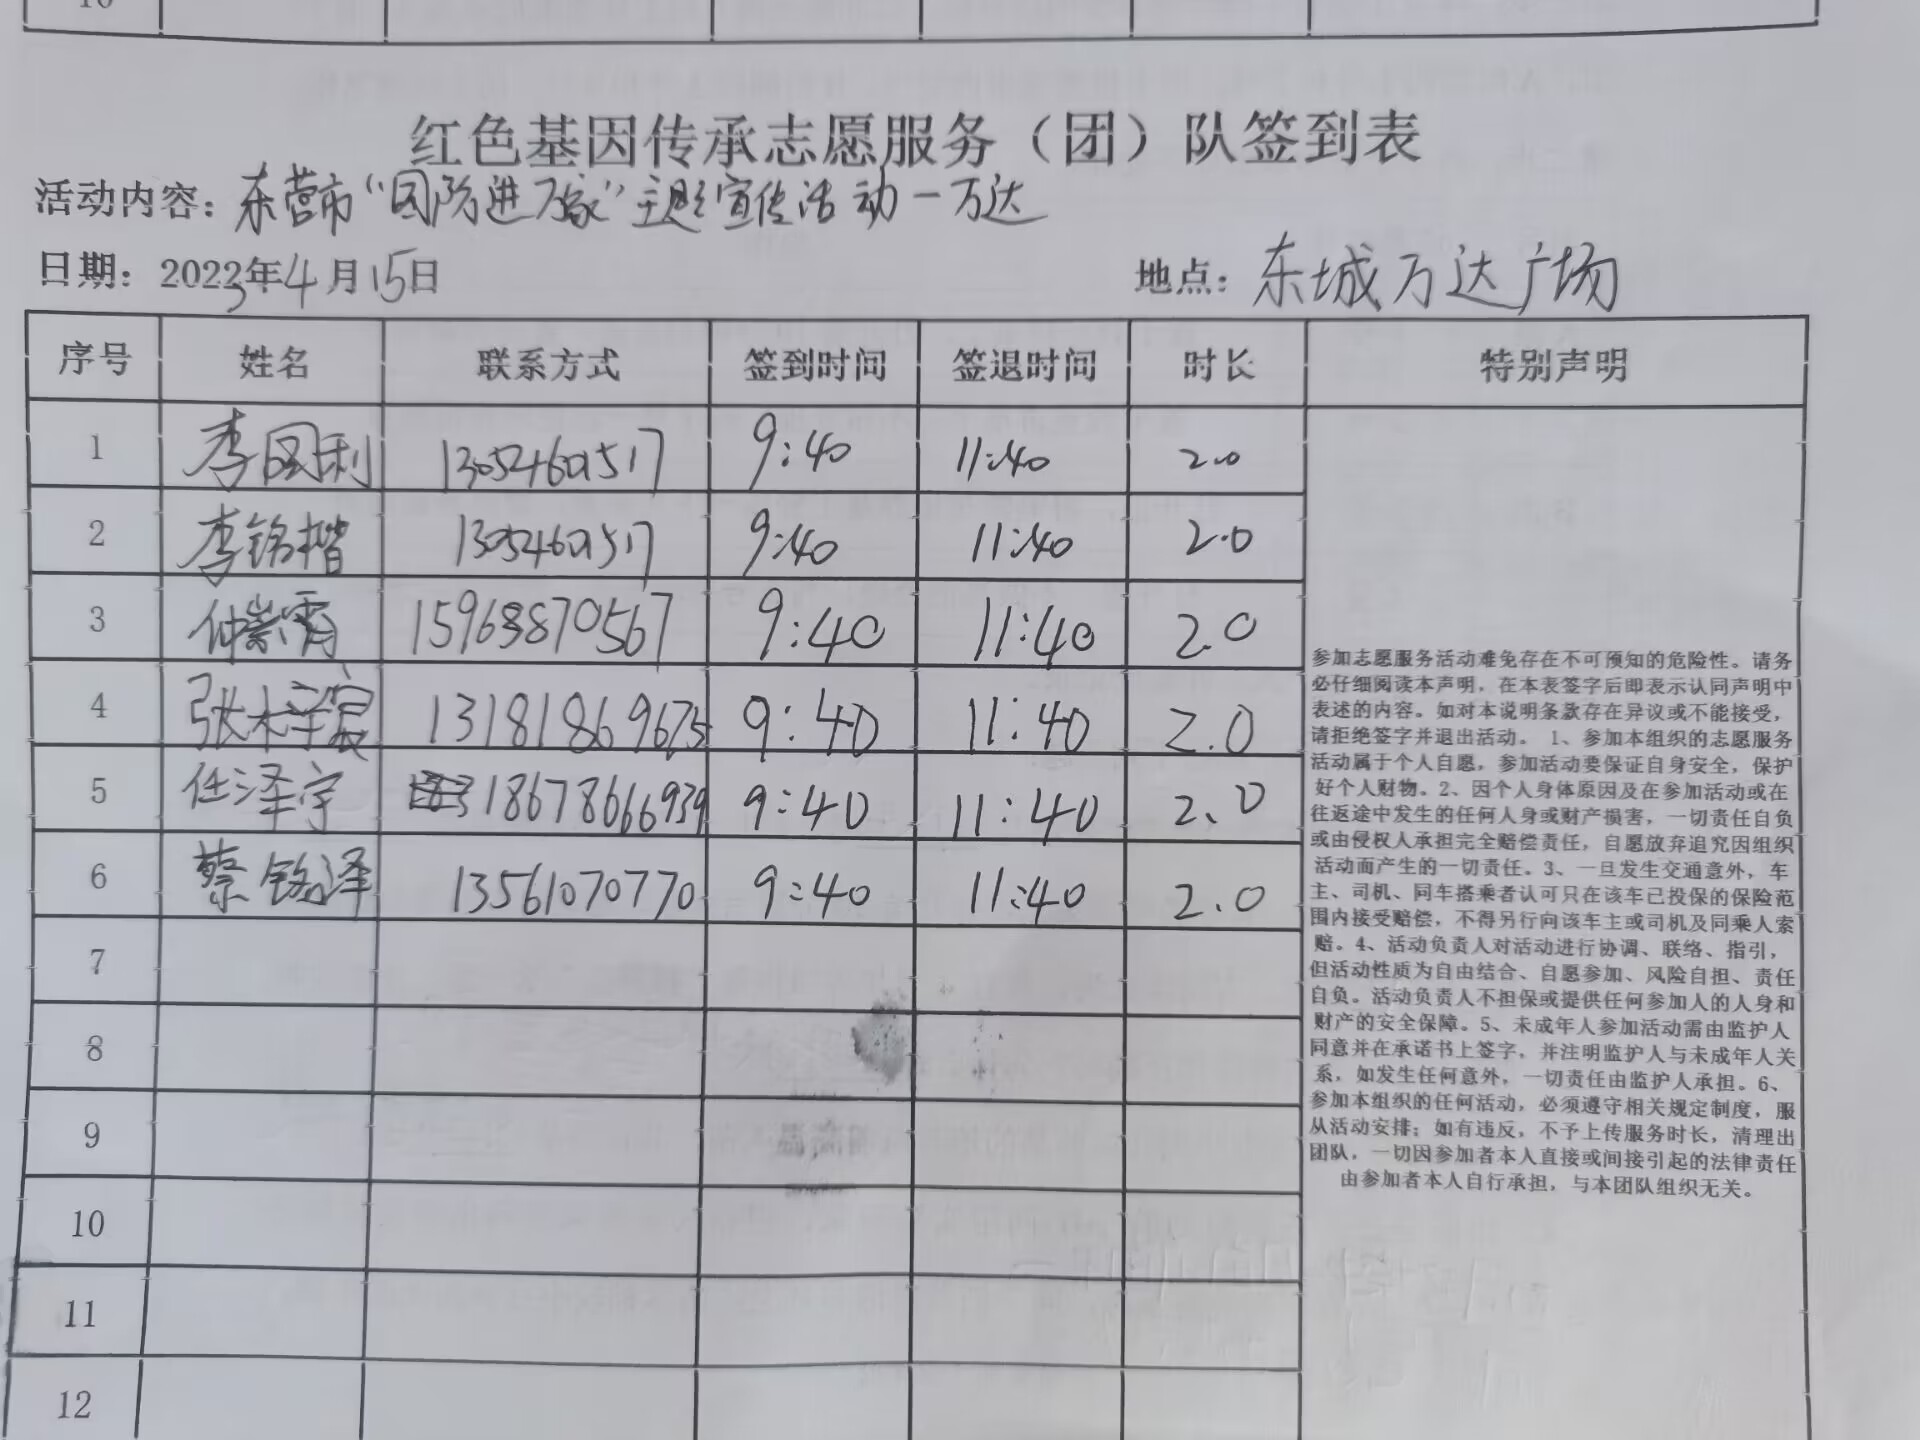 10
红色基因传承志愿服务（团）队签到表
活动内容：东营市“国防进万家”主题宣传活动一万达
日期：2023年4月15日 地点：东城万达广场
序号 姓名 联系方式 签到时间 签退时间 时长 特别声明
1 李国利 13054601517 9:40 11:40 2.0
2 李铭楷 13054601517 9:40 11:40 2.0
3 仲崇霄 15963870567 9:40 11:40 2.0
4 张木子宸 13181869675 9:40 11:40 2.0
5 任泽宇 18678666939 9:40 11:40 2.0
6 蔡铭泽 13561070770 9:40 11:40 2.0
7
8
9
10
11
12
参加志愿服务活动难免存在不可预知的危险性。请务
必仔细阅读本声明，在本表签字后即表示认同声明中
表述的内容。如对本说明条款存在异议或不能接受，
请拒绝签字并退出活动。 1、参加本组织的志愿服务
活动属于个人自愿，参加活动要保证自身安全，保护
好个人财物。2、因个人身体原因及在参加活动或在
往返途中发生的任何人身或财产损害，一切责任自负
或由侵权人承担完全赔偿责任，自愿放弃追究因组织
活动而产生的一切责任。3、一旦发生交通意外，车
主、司机、同车搭乘者认可只在该车已投保的保险范
围内接受赔偿，不得另行向该车主或司机及同乘人索
赔。4、活动负责人对活动进行协调、联络、指引，
但活动性质为自由结合、自愿参加、风险自担、责任
自负。活动负责人不担保或提供任何参加人的人身和
财产的安全保障。5、未成年人参加活动需由监护人
同意并在承诺书上签字，并注明监护人与未成年人关
系，如发生任何意外，一切责任由监护人承担。6、
参加本组织的任何活动，必须遵守相关规定制度，服
从活动安排；如有违反，不予上传服务时长，清理出
团队，一切因参加者本人直接或间接引起的法律责任
由参加者本人自行承担，与本团队组织无关。